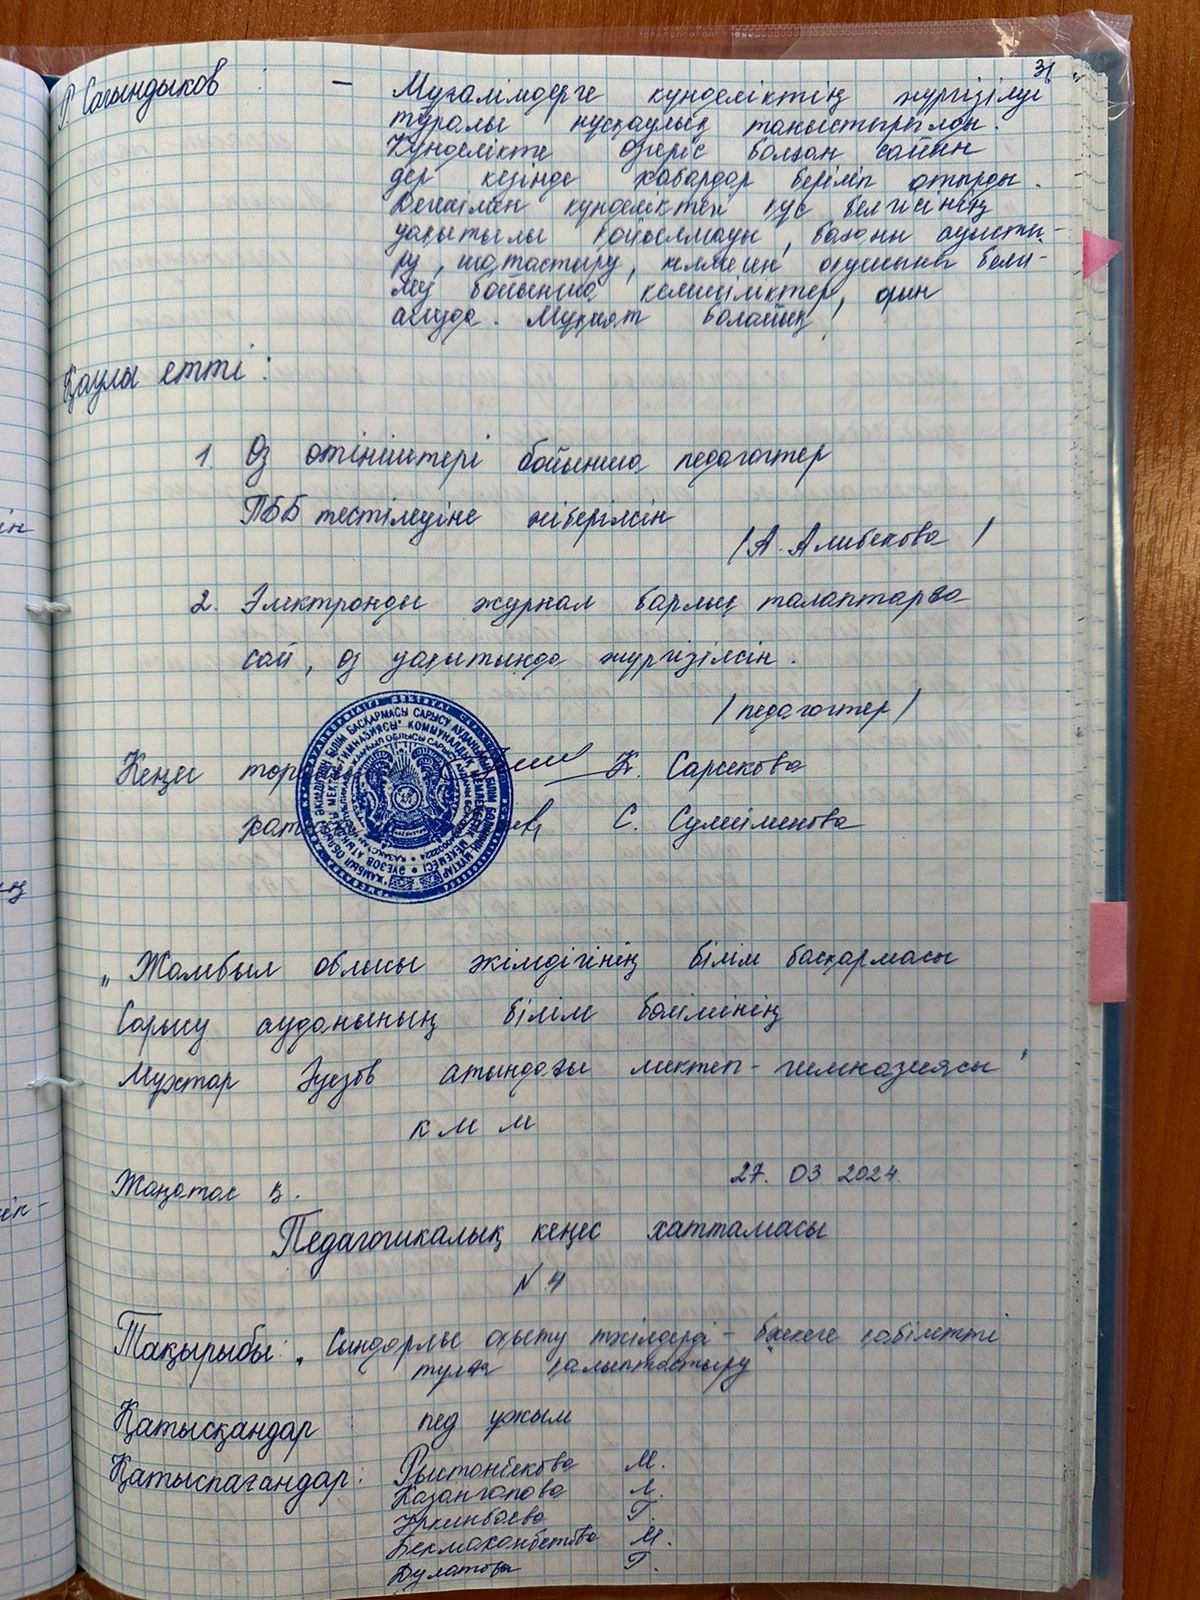 31
Ғ. Сағындықов : – Мұғалімдерге күнделіктің жүргізілуі
туралы нұсқаулық таныстырылды.
Күнделікте өзгеріс болған сайын
дер кезінде хабардар беріліп отырды.
Дегенмен күнделіктен қус белгісінің
уақытылы қойылмауы, бағаны ауысты-
ру, шатастыру, келмеген оқушыны белгі-
леу бойынша кемшіліктер, орын
алуда. Мұқият болайық!
Қаулы етті :
1. Өз өтініштері бойынша педагогтер
ПББ тестілеуіне жіберілсін
/ А. Алибекова /
2. Электронды журнал барлық талаптарға
сай, өз уақытында жүргізілсін.
/ педагогтер /
Кеңес К. Сарсекова
С. Сулейменова
„Жамбыл облысы әкімдігінің білім басқармасы
Сарысу ауданының білім бөлімінің
Мұхтар Әуезов атындағы мектеп-гимназиясы"
КММ
Жаңатас қ. 27. 03 2024.
Педагогикалық кеңес хаттамасы
№ 4
Тақырыбы: „Сындарлы оқыту тәсілдері – бәсекеге қабілетті
тұлға қалыптастыру"
Қатысқандар : пед ұжым
Қатыспағандар: Рыстанбекова М.
Казангапова Л.
Уркинбаева Г.
Бекмаханбетова М.
Дулатова Г.